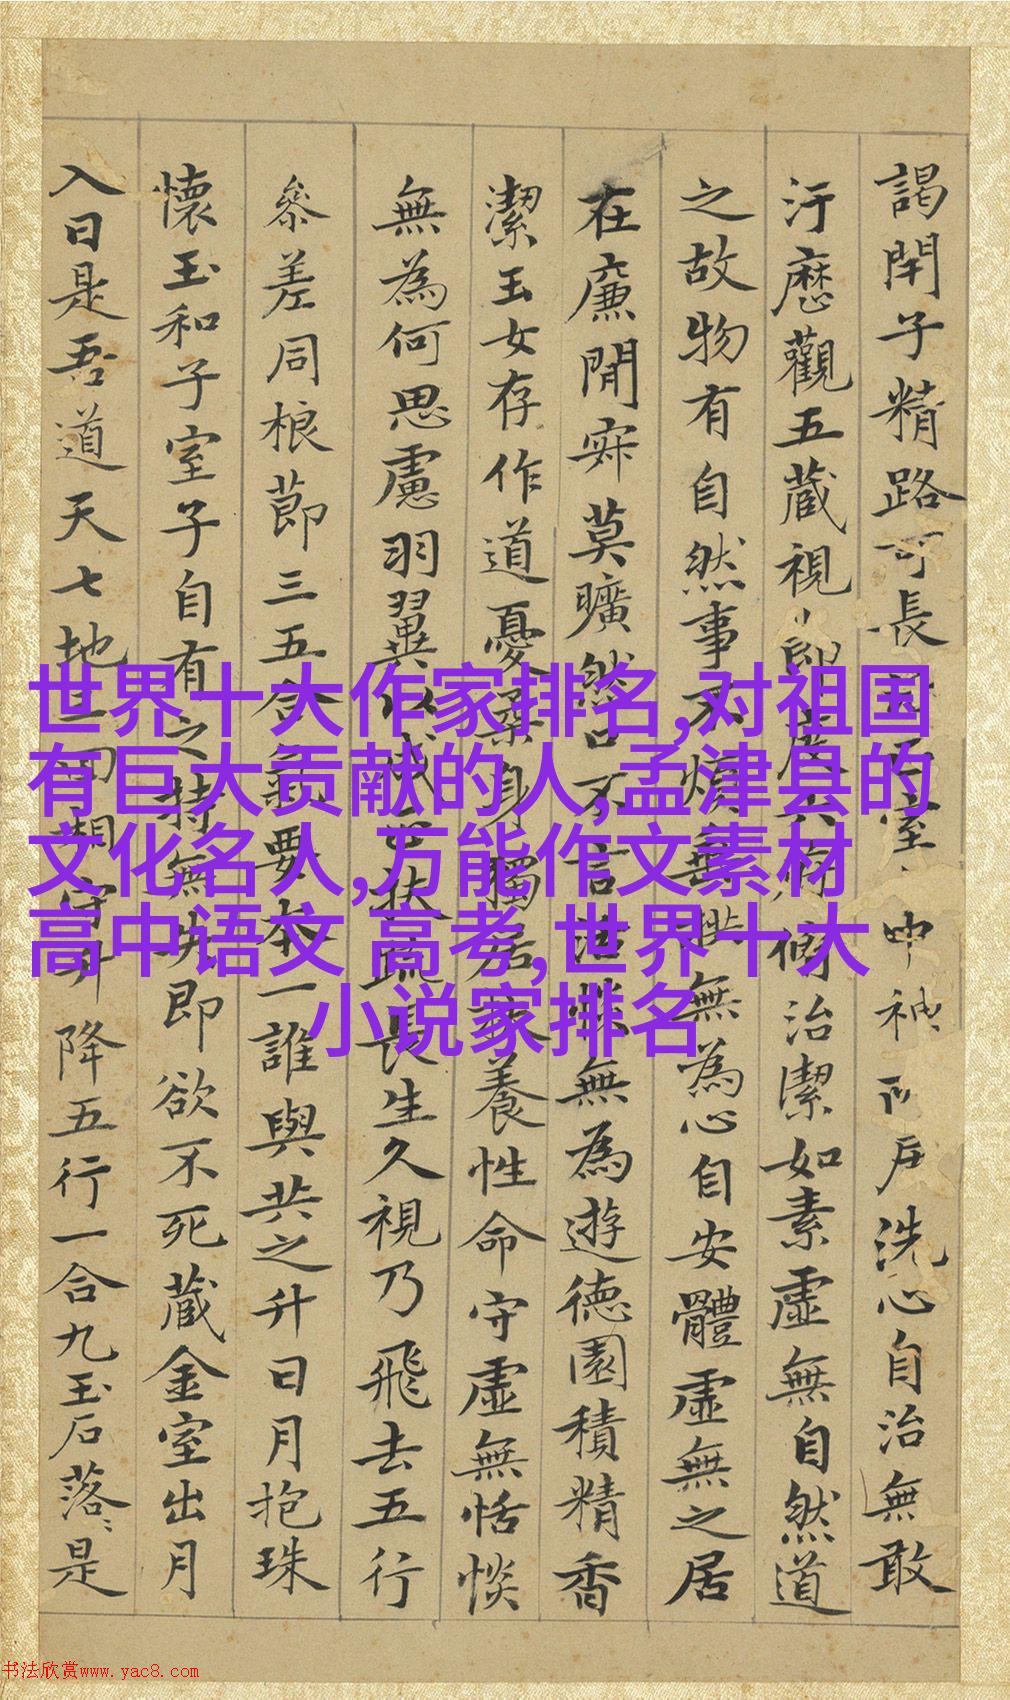 謁閇子精路可長室中神戶洗心自治無敢
汙歷觀五藏視節度六府脩治潔如素虛無自然道
之故物有自然事不煩無為心自安體虛無之居
在廉閒寂莫曠然口不言恬惔無為遊德園積精香
潔玉女存作道憂柔身獨居扶養性命守虛無恬惔
無為何思慮羽翼以成正扶疏長生久視乃飛去五行
參差同根節三五合氣要本一誰與共之升日月抱珠
懷玉和子室子自有之持無失即欲不死藏金室出月
入日是吾道天七地三回相守升降五行一合九玉石落〻是
世界十大作家排名,对祖国
有巨大贡献的人,孟津县的
文化名人,万能作文素材
高中语文 高考,世界十大
小说家排名
书法欣赏www.yac8.com